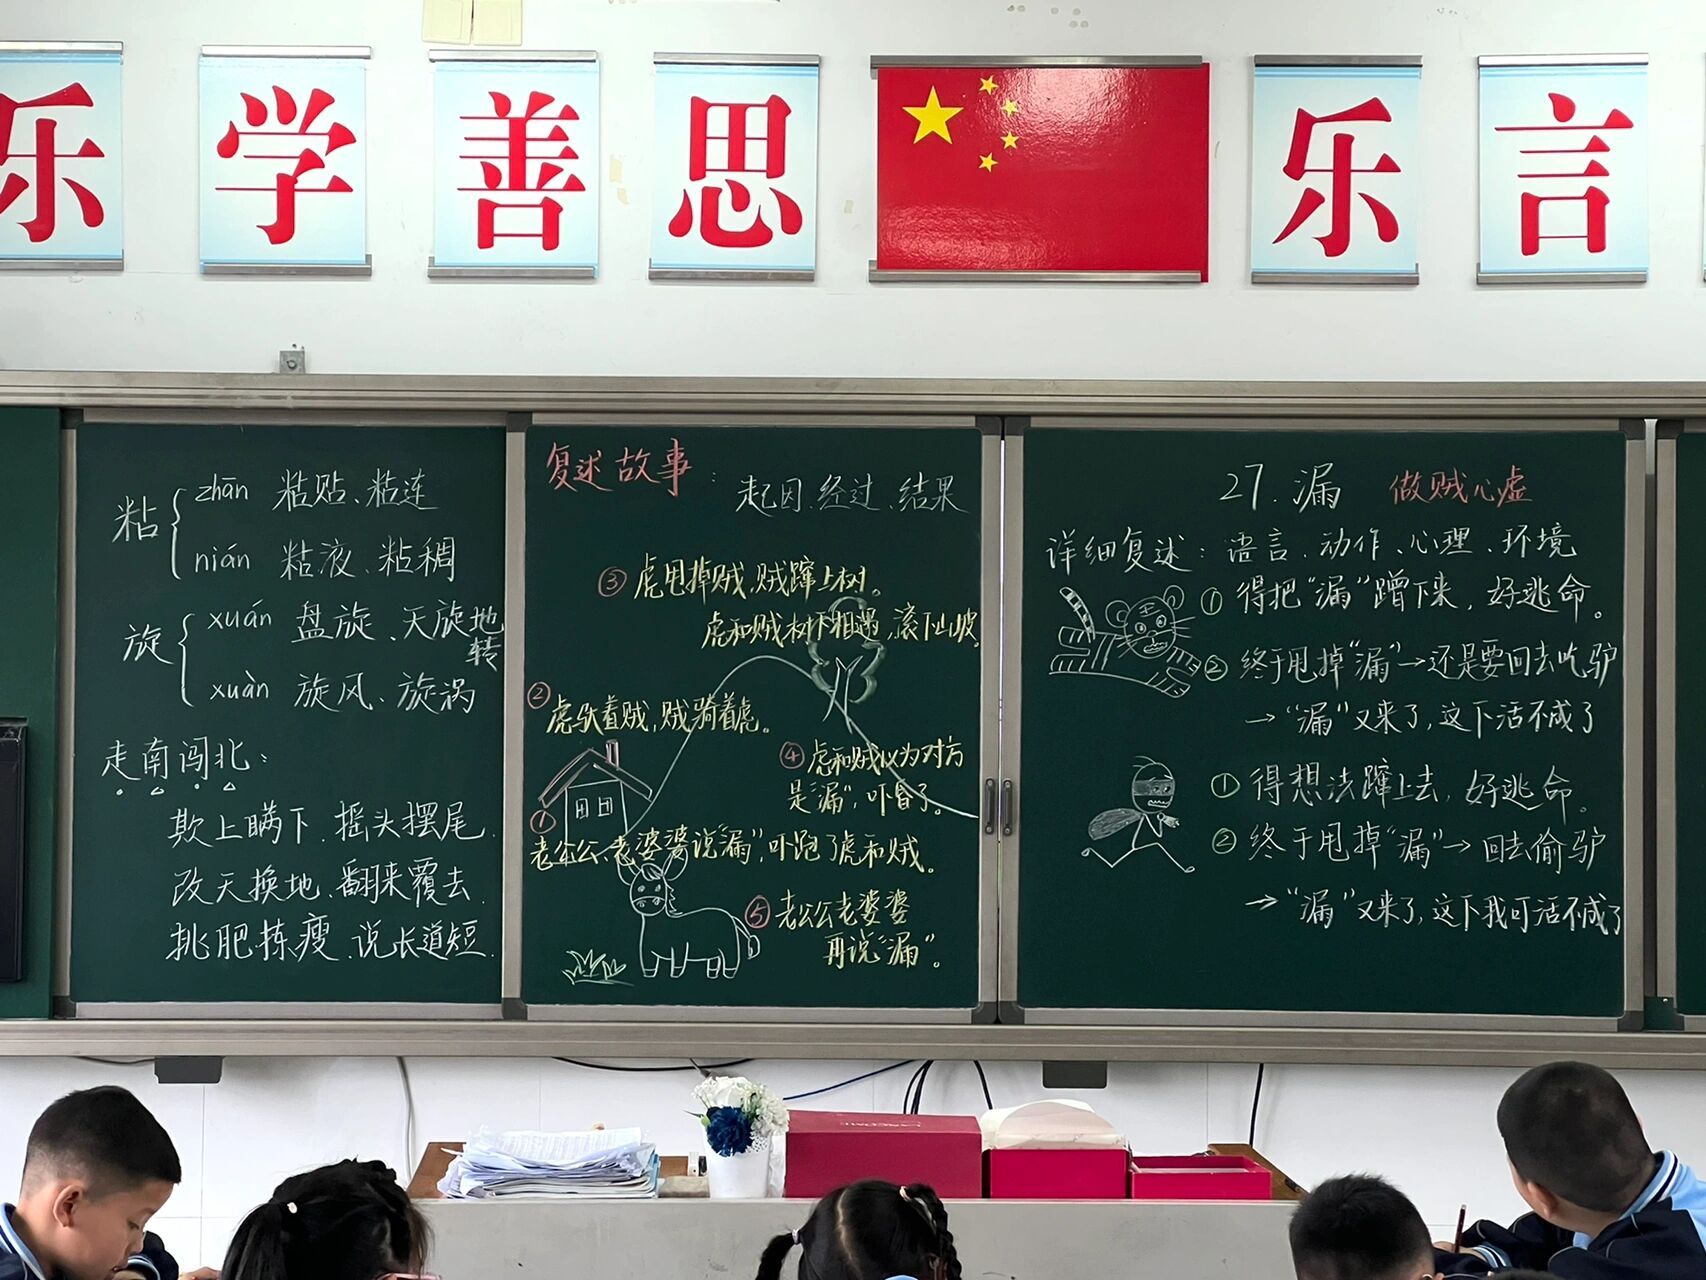 乐学善思 乐言
粘
zhān 粘贴、粘连
nián 粘液、粘稠
旋
xuán 盘旋、天旋地转
xuàn 旋风、旋涡
走南闯北：
欺上瞒下、摇头摆尾、
改天换地、翻来覆去、
挑肥拣瘦、说长道短、
复述故事：
起因、经过、结果
③虎甩掉贼，贼蹿上树。
虎和贼树下相遇，滚下山坡。
②虎驮着贼，贼骑着虎。
④虎和贼以为对方
是“漏”，吓昏了。
①老公公、老婆婆说“漏”，吓跑了虎和贼。
⑤老公公老婆婆
再说“漏”。
27.漏 做贼心虚
详细复述：语言、动作、心理、环境
①得把“漏”蹭下来，好逃命。
②终于甩掉“漏”→还是要回去吃驴
→“漏”又来了，这下活不成了
①得想法蹿上去，好逃命。
②终于甩掉“漏”→回去偷驴
→“漏”又来了，这下我可活不成了